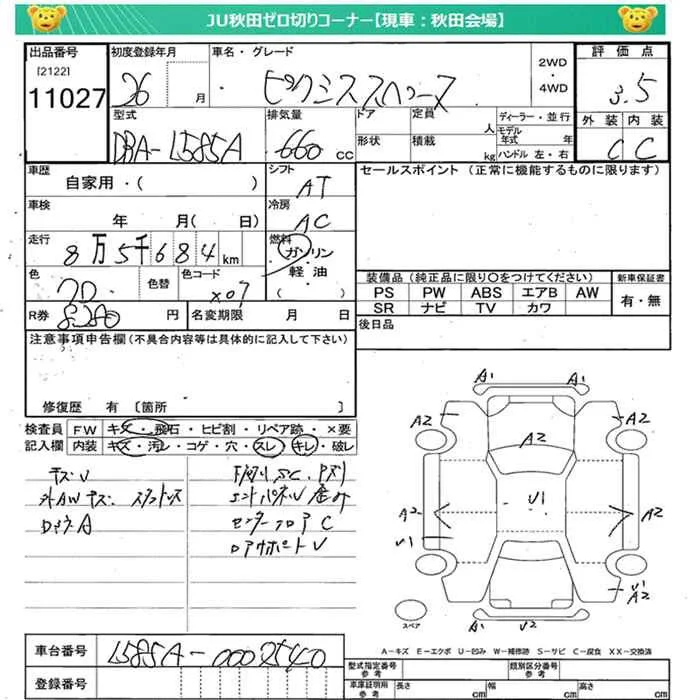 JU秋田ゼロ切りコーナー【現車：秋田会場】
出品番号 初度登録年月 車名・グレード 2WD・4WD 評価点
[2122]
11027 26 月 ピクシススペース 3.5
型式 排気量 ドア 定員 人 ディーラー・並行 外装 内装
DBA-L585A 660 cc 形状 積載 kg モデル年式 年 ハンドル 左・右 C C
車歴 シフト セールスポイント（正常に機能するものに限ります）
自家用・（ ） AT
車検 冷房
年 月（ 日） AC
走行 燃料
8万5千684km ガソリン
軽油
（ ）
色 色替 色コード 装備品（純正品に限り○をつけてください） 新車保証書
X07 PS PW ABS エアB AW 有・無
SR ナビ TV カワ
R券 円 名変期限 月 日 後日品
注意事項申告欄（不具合内容等は具体的に記入して下さい）
修復歴 有 〔箇所 〕
検査員 FW キズ・飛石・ヒビ割・リペア跡・×要
記入欄 内装 キズ・汚レ・コゲ・穴・スレ・キレ・破レ
キズV
外AWキズ
A
下廻りSC、
エンドパネルV
センターフロアC
ロアサポートV
A1 A1
A2 A2
A2
V1
A2 A2
V1
V1
A2
A1 V2
スペア
A-キズ E-エクボ U-凹み W-補修跡 S-サビ C-腐食 XX-交換済
車台番号 L585A-0002540
登録番号
型式指定番号 参考 類別区分番号 参考
車庫証明用 参考 長さ cm 幅 cm 高さ cm